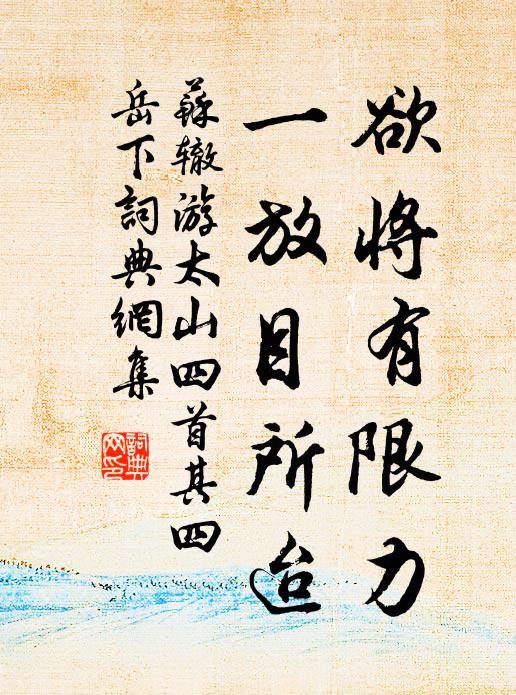 欲將有限力
一放目所迨
蘇轍游太山四首其四
岳下詞典網集
詞典
网印